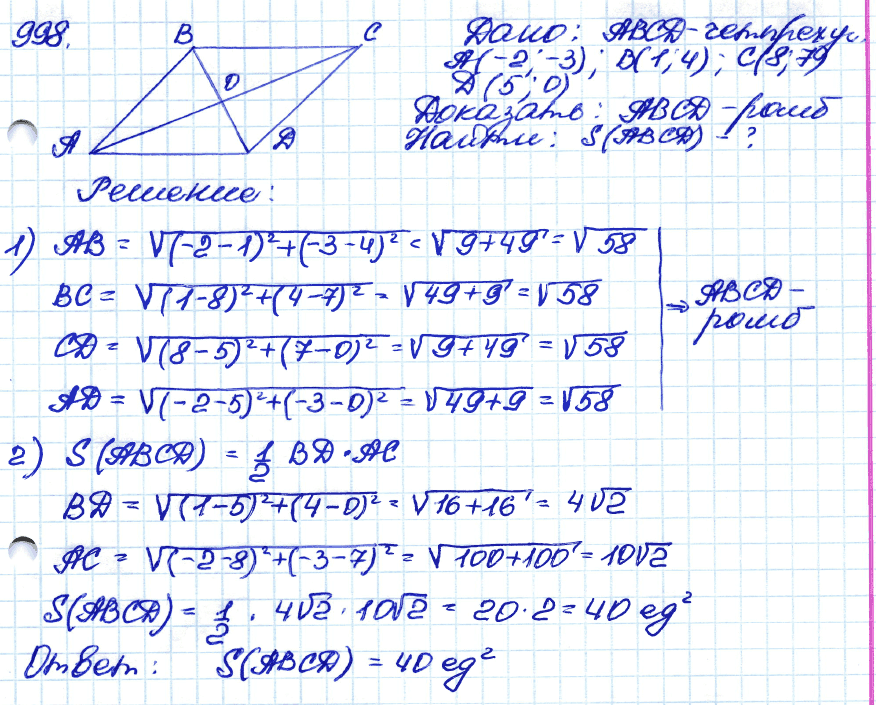 998.
B
C
O
A
D
Дано: ABCD-четыреху
A(-2; -3); B(1; 4); C(8; 7)
D(5; 0)
Доказать: ABCD-ромб
Найти: S(ABCD) - ?
Решение:
1) AB = √(-2-1)²+(-3-4)² = √9+49 = √58
BC = √(1-8)²+(4-7)² = √49+9 = √58
CD = √(8-5)²+(7-0)² = √9+49 = √58
AD = √(-2-5)²+(-3-0)² = √49+9 = √58
⇒ ABCD-
ромб
2) S(ABCD) = 1/2 BD·AC
BD = √(1-5)²+(4-0)² = √16+16 = 4√2
AC = √(-2-8)²+(-3-7)² = √100+100 = 10√2
S(ABCD) = 1/2 · 4√2 · 10√2 = 20·2 = 40 ед²
Ответ: S(ABCD) = 40 ед²